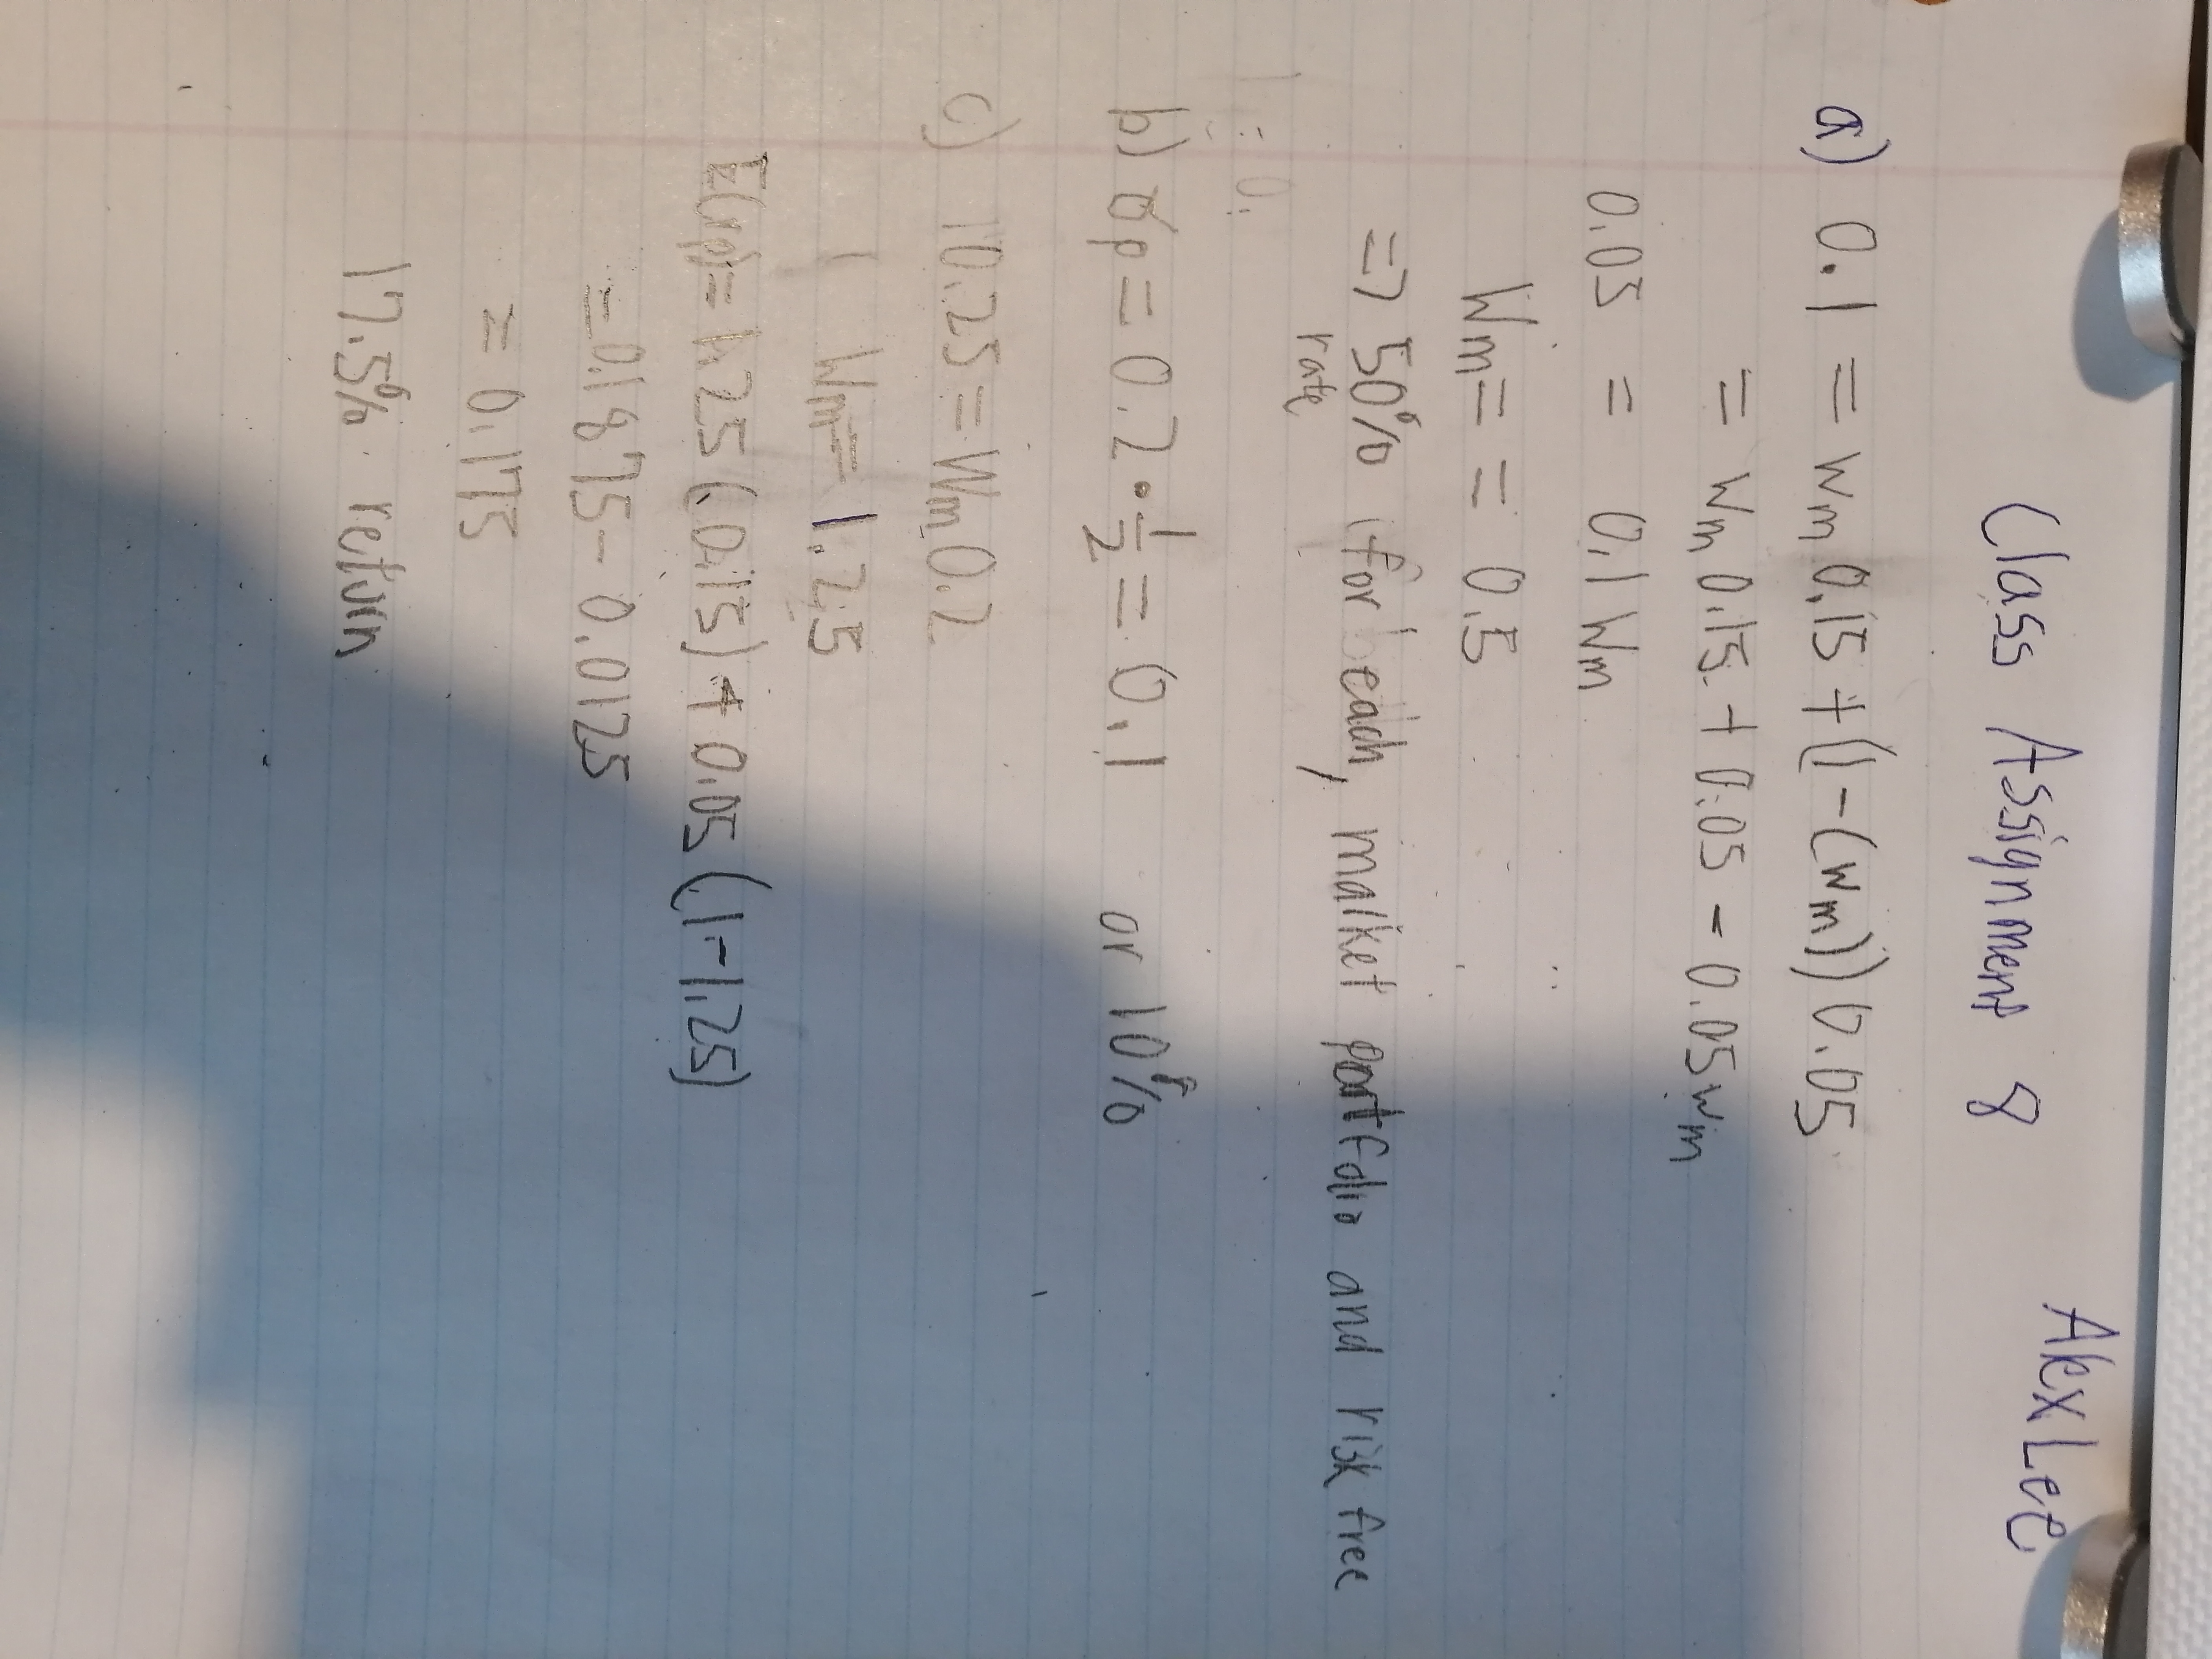 Class Assignment 8 Alex Lee
a) 0.1 = Wm 0.15 + (1-(wm)) 0.05
= Wm 0.15 + 0.05 - 0.05wm
0.05 = 0.1 Wm
Wm = = 0.5
=> 50% for each, market portfolio and risk free
rate
b) σp = 0.2 · 1/2 = 0.1 or 10%
c) 0.25 = Wm 0.2
Wm = 1.25
E(rp) = 1.25 (0.15) + 0.05 (1-1.25)
= 0.1875 - 0.0125
= 0.175
17.5% return